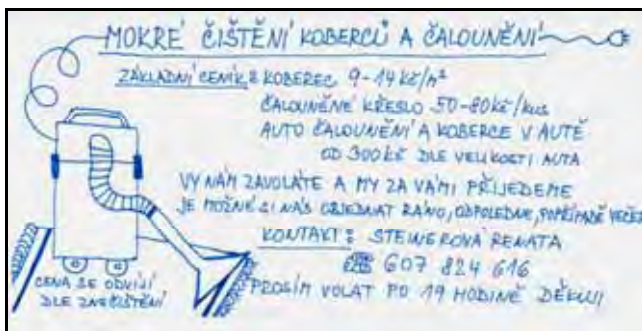 MOKRÉ ČIŠTĚNÍ KOBERCŮ A ČALOUNĚNÍ
ZÁKLADNÍ CENÍK: KOBEREC 9-14 Kč/m²
ČALOUNĚNÉ KŘESLO 50-80 Kč/kus
AUTO ČALOUNĚNÍ A KOBERCE V AUTĚ
OD 300 Kč DLE VELIKOSTI AUTA
VY NÁM ZAVOLÁTE A MY ZA VÁMI PŘIJEDEME
JE MOŽNÉ SI NÁS OBJEDNAT RÁNO, ODPOLEDNE, POPŘÍPADĚ VEČER
KONTAKT: STEINEROVÁ RENATA
☎ 607 824 616
PROSÍM VOLAT PO 19 HODINĚ DĚKUJI
CENA SE ODVÍJÍ
DLE ZNEČIŠTĚNÍ